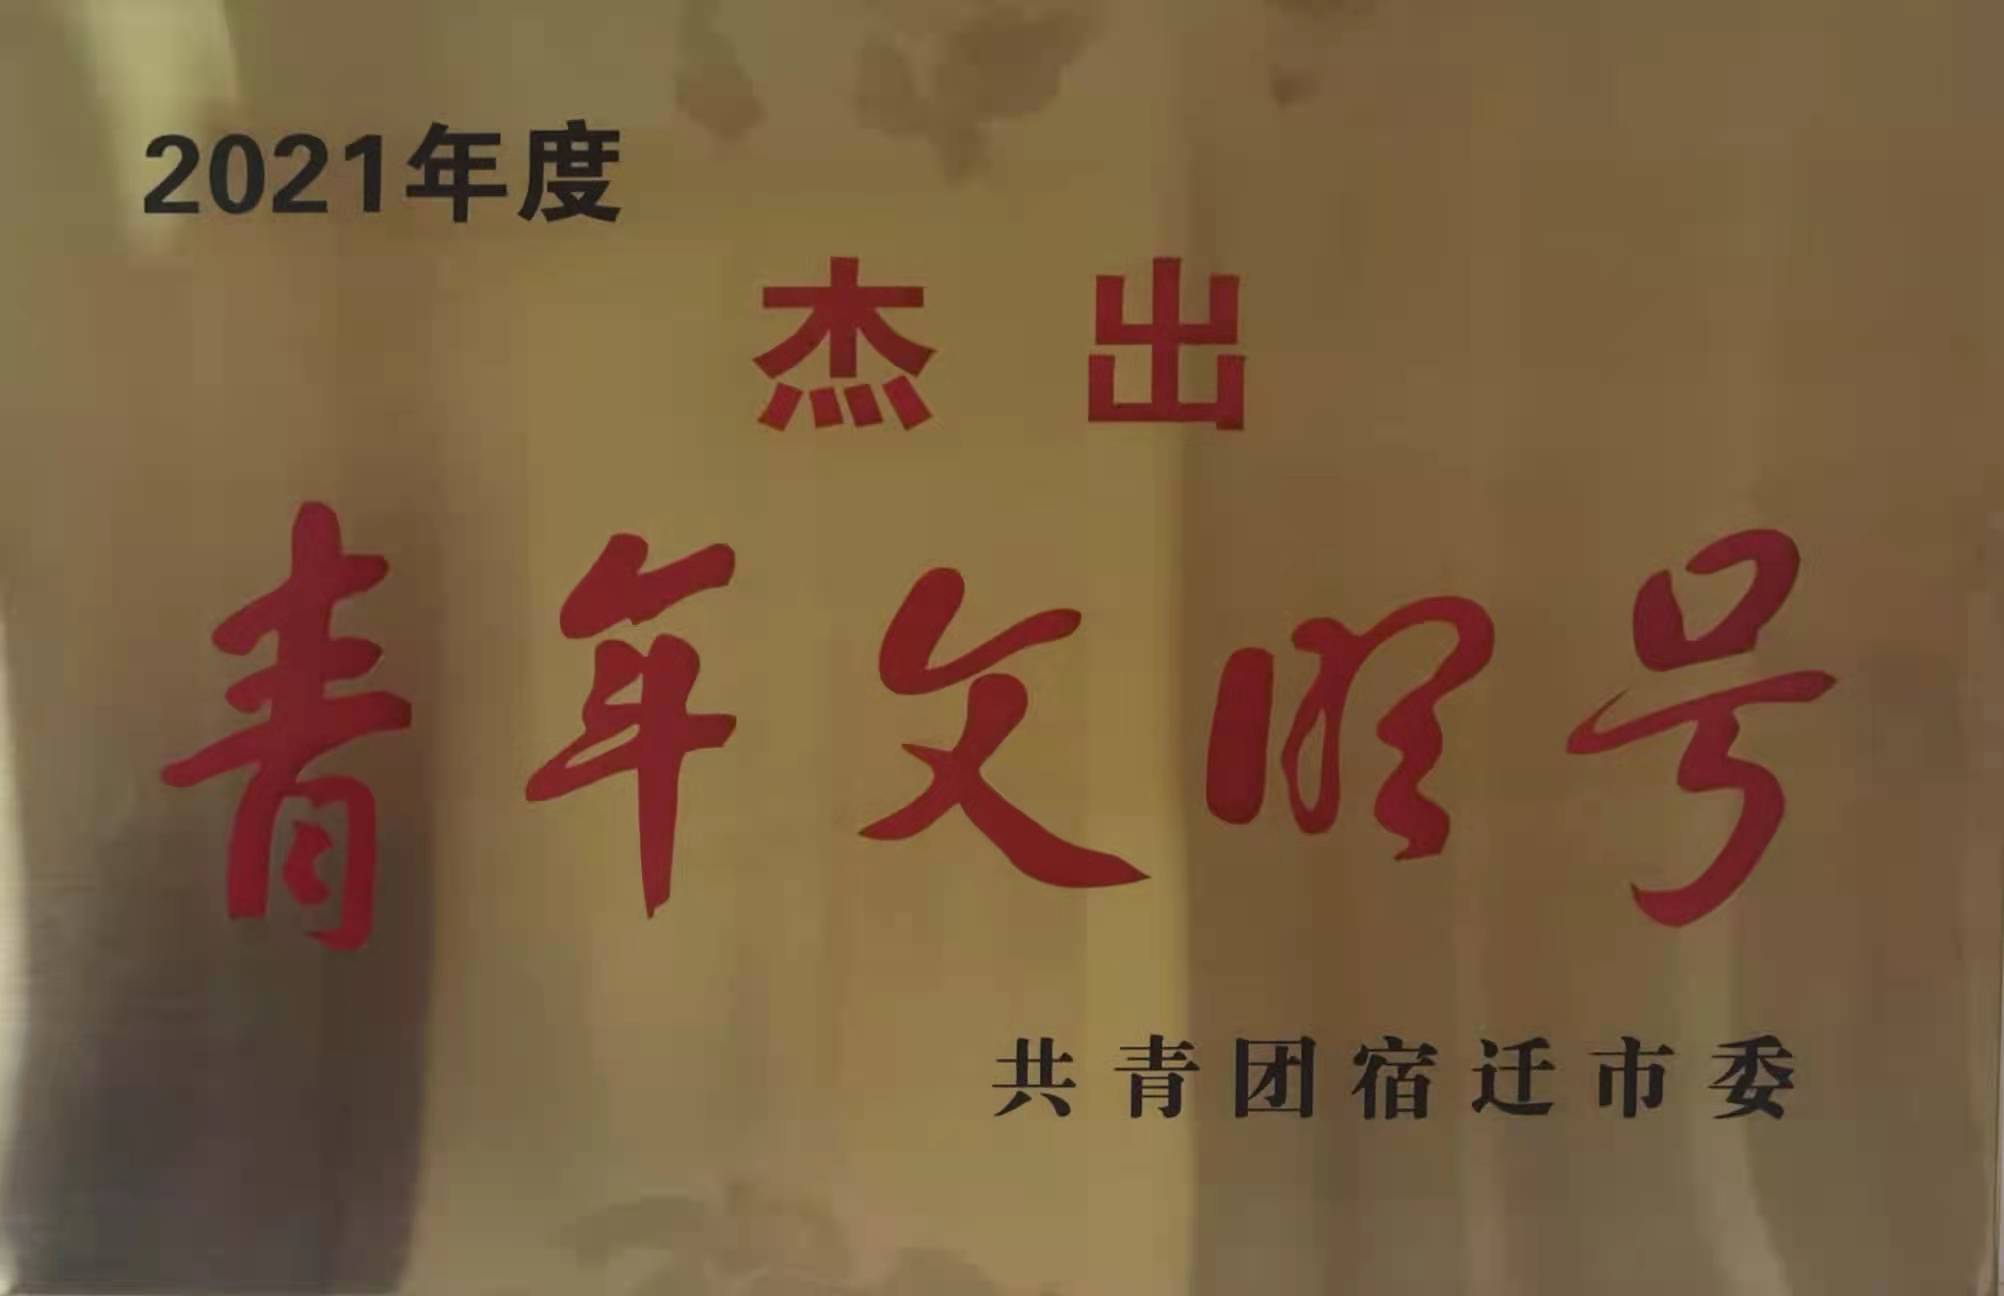 2021年度
杰出
青年文明号
共青团宿迁市委